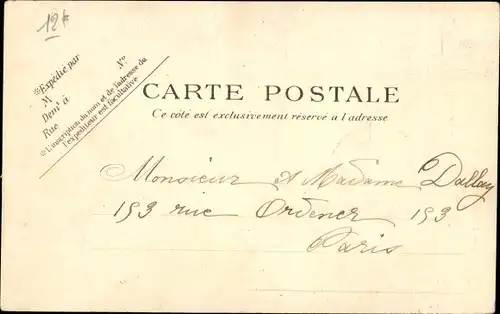 12k
Expédié par
M Nº
Demt à
Rue
L'inscription du nom et de l'adresse de
l'expéditeur est facultative
CARTE POSTALE
Ce côté est exclusivement réservé à l'adresse
Monsieur et Madame Dallay
193 rue Ordener 193
Paris